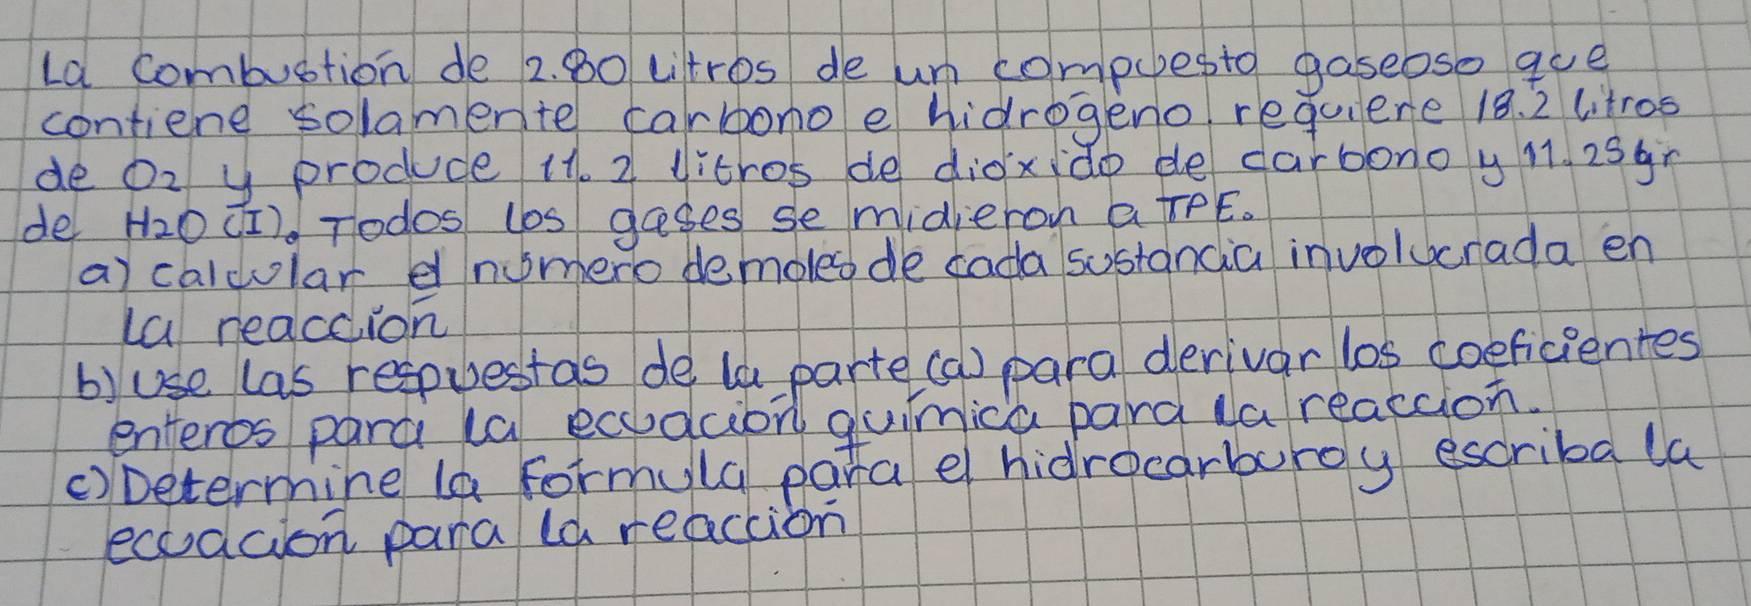 La combustión de 2.80 Litros de un compuesto gaseoso que
contiene solamente carbono e hidrógeno requiere 18.2 litros
de O2 y produce 11.2 litros de dióxido de carbono y 11.25 gr
de H2O (I). Todos los gases se midieron a TPE.
a) calcular el número de moles de cada sustancia involucrada en
la reacción
b) Use las respuestas de la parte (a) para derivar los coeficientes
enteros para la ecuación química para la reacción.
c) Determine la formula para el hidrocarburo y escriba la
ecuación para la reacción